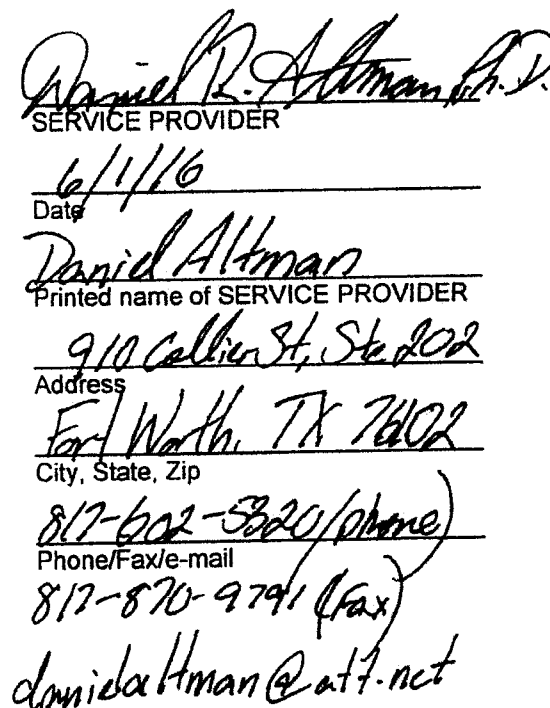 Daniel R. Altman, Ph.D.
SERVICE PROVIDER
6/1/16
Date
Daniel Altman
Printed name of SERVICE PROVIDER
910 Collier St, Ste 202
Address
Fort Worth, TX 76102
City, State, Zip
817-602-5320 (phone)
Phone/Fax/e-mail
817-870-9791 (Fax)
danielaltman@att.net